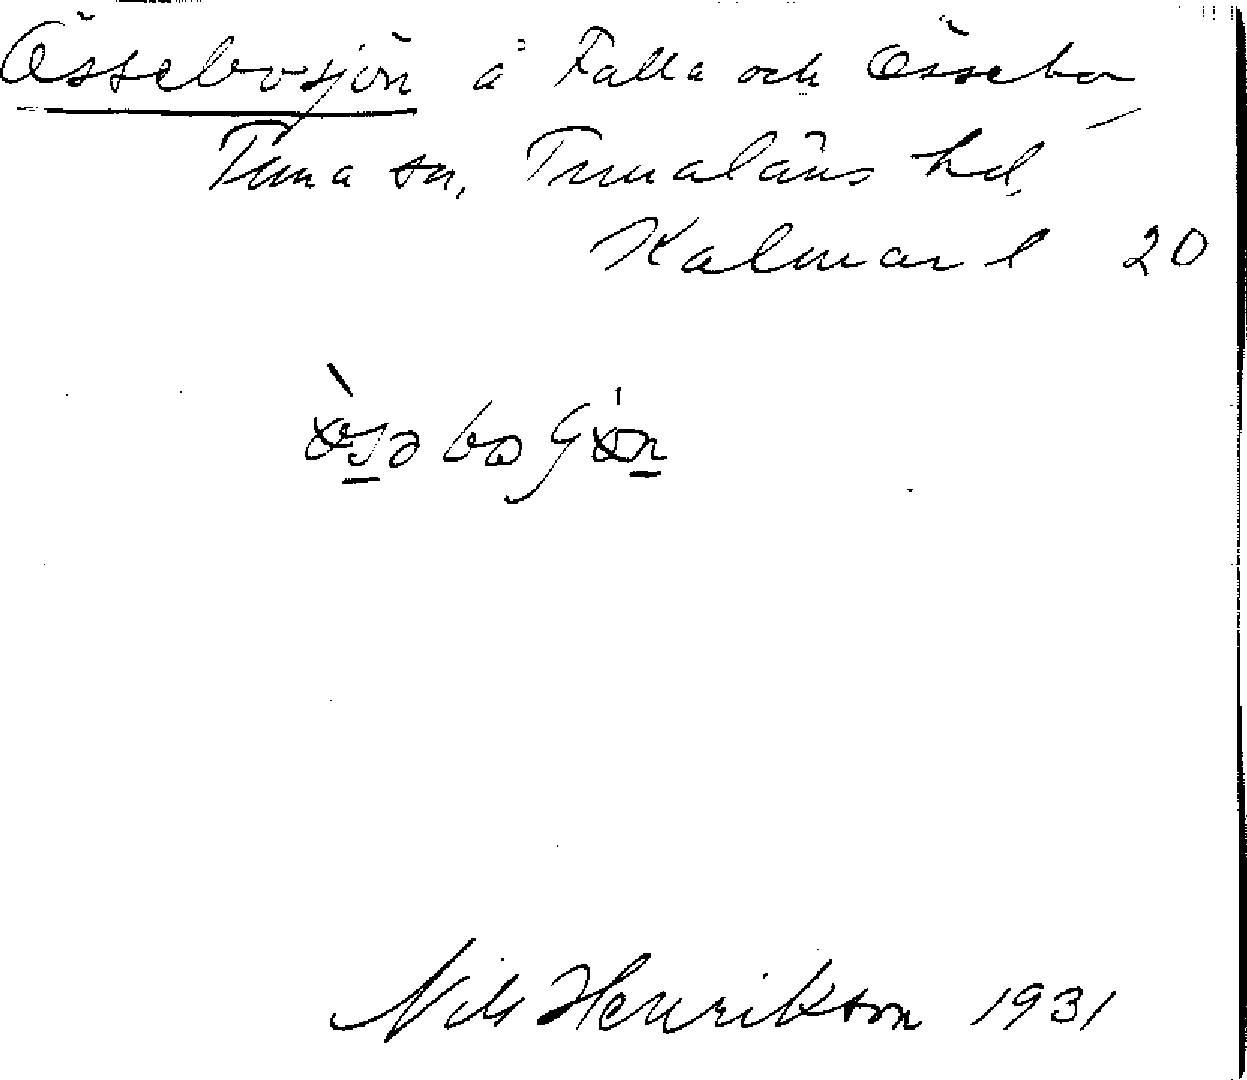 Össebosjön å Falla och Össebo,
Tuna sn, Tunaläns hd,
Kalmar l 20
Nils Henrikson 1931